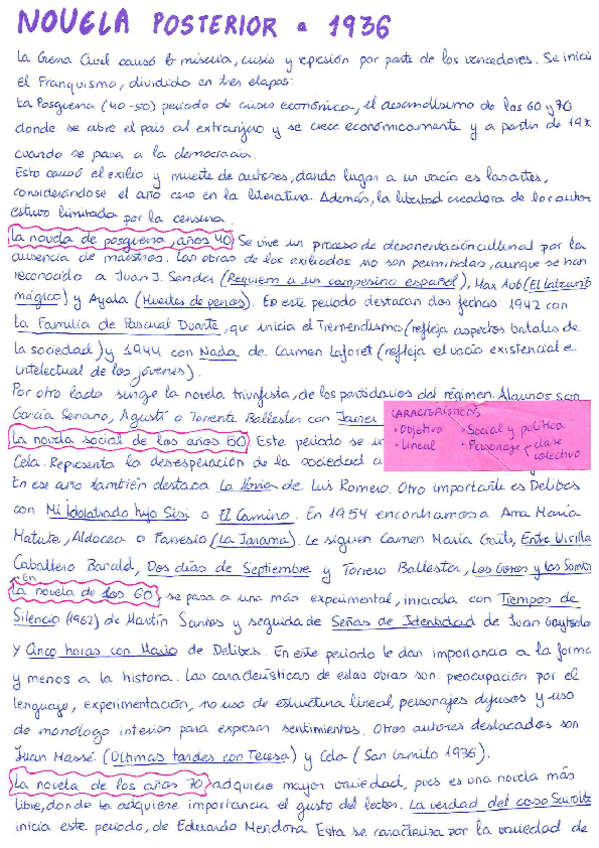 NOVELA POSTERIOR a 1936
La Guerra Civil causó la miseria, crisis y represión por parte de los vencedores. Se inicia
el Franquismo, dividido en tres etapas:
La Posguerra (40-50) periodo de crisis económica, el desarrollismo de los 60 y 70
donde se abre el país al extranjero y se crece económicamente y a partir de 197
cuando se pasa a la democracia.
Esto causó el exilio y muerte de autores, dando lugar a un vacío es las artes,
considerándose el año cero en la literatura. Además, la libertad creadora de los autor
estuvo limitada por la censura.
La novela de posguerra, años 40 Se vive un proceso de desorientación cultural por la
ausencia de maestros. Las obras de los exiliados no son permitidas, aunque se han
reconocido a Juan J. Sender (Requiem a un campesino español), Max Aub (El laberinto
mágico) y Ayala (Muertes de perros). En este periodo destacan dos fechas: 1942 con
La Familia de Pascual Duarte, que inicia el Tremendismo (refleja aspectos brutales de
la sociedad) y 1944 con Nada de Carmen Laforet (refleja el vacío existencial e
intelectual de los jóvenes).
Por otro lado surge la novela triunfista, de los partidarios del régimen. Algunos son
García Serrano, Agustí o Torrente Ballester con Javier
CARACTERÍSTICAS
• Objetiva • Social y política
• Lineal • Personaje clase
colectivo
La novela social de los años 50 Este periodo se in
Cela. Representa la desesperación de la sociedad a
En ese año también destaca La Noria de Luis Romero. Otro importante es Delibes
con Mi idolatrado hijo Sisi o El Camino. En 1954 encontramos a Ana María
Matute, Aldecoa o Ferresio (La Jarama). Le siguen Carmen María Gaite, Entre Visillo
Caballero Bonald, Dos días de Septiembre y Torrero Ballester, Los Gozos y las Sombr
En
La novela de los 60, se pasa a una más experimental, iniciada con Tiempos de
Silencio (1962) de Martín Santos y seguida de Señas de Identidad de Juan Goytisolo
y Cinco horas con Mario de Delibes. En este periodo le dan importancia a la forma
y menos a la historia. Las características de estas obras son: preocupación por el
lenguaje, experimentación, no uso de estructura lineal, personajes difusos y uso
de monólogo interior para expresar sentimientos. Otros autores destacados son
Juan Massé (Últimas tardes con Teresa) y Cela (San Camilo 1936).
La novela de los años 70 adquiere mayor variedad, pues es una novela más
libre, donde se adquiere importancia el gusto del lector. La verdad del caso Savolta
inicia este periodo, de Eduardo Mendoza. Esta se caracteriza por la variedad de